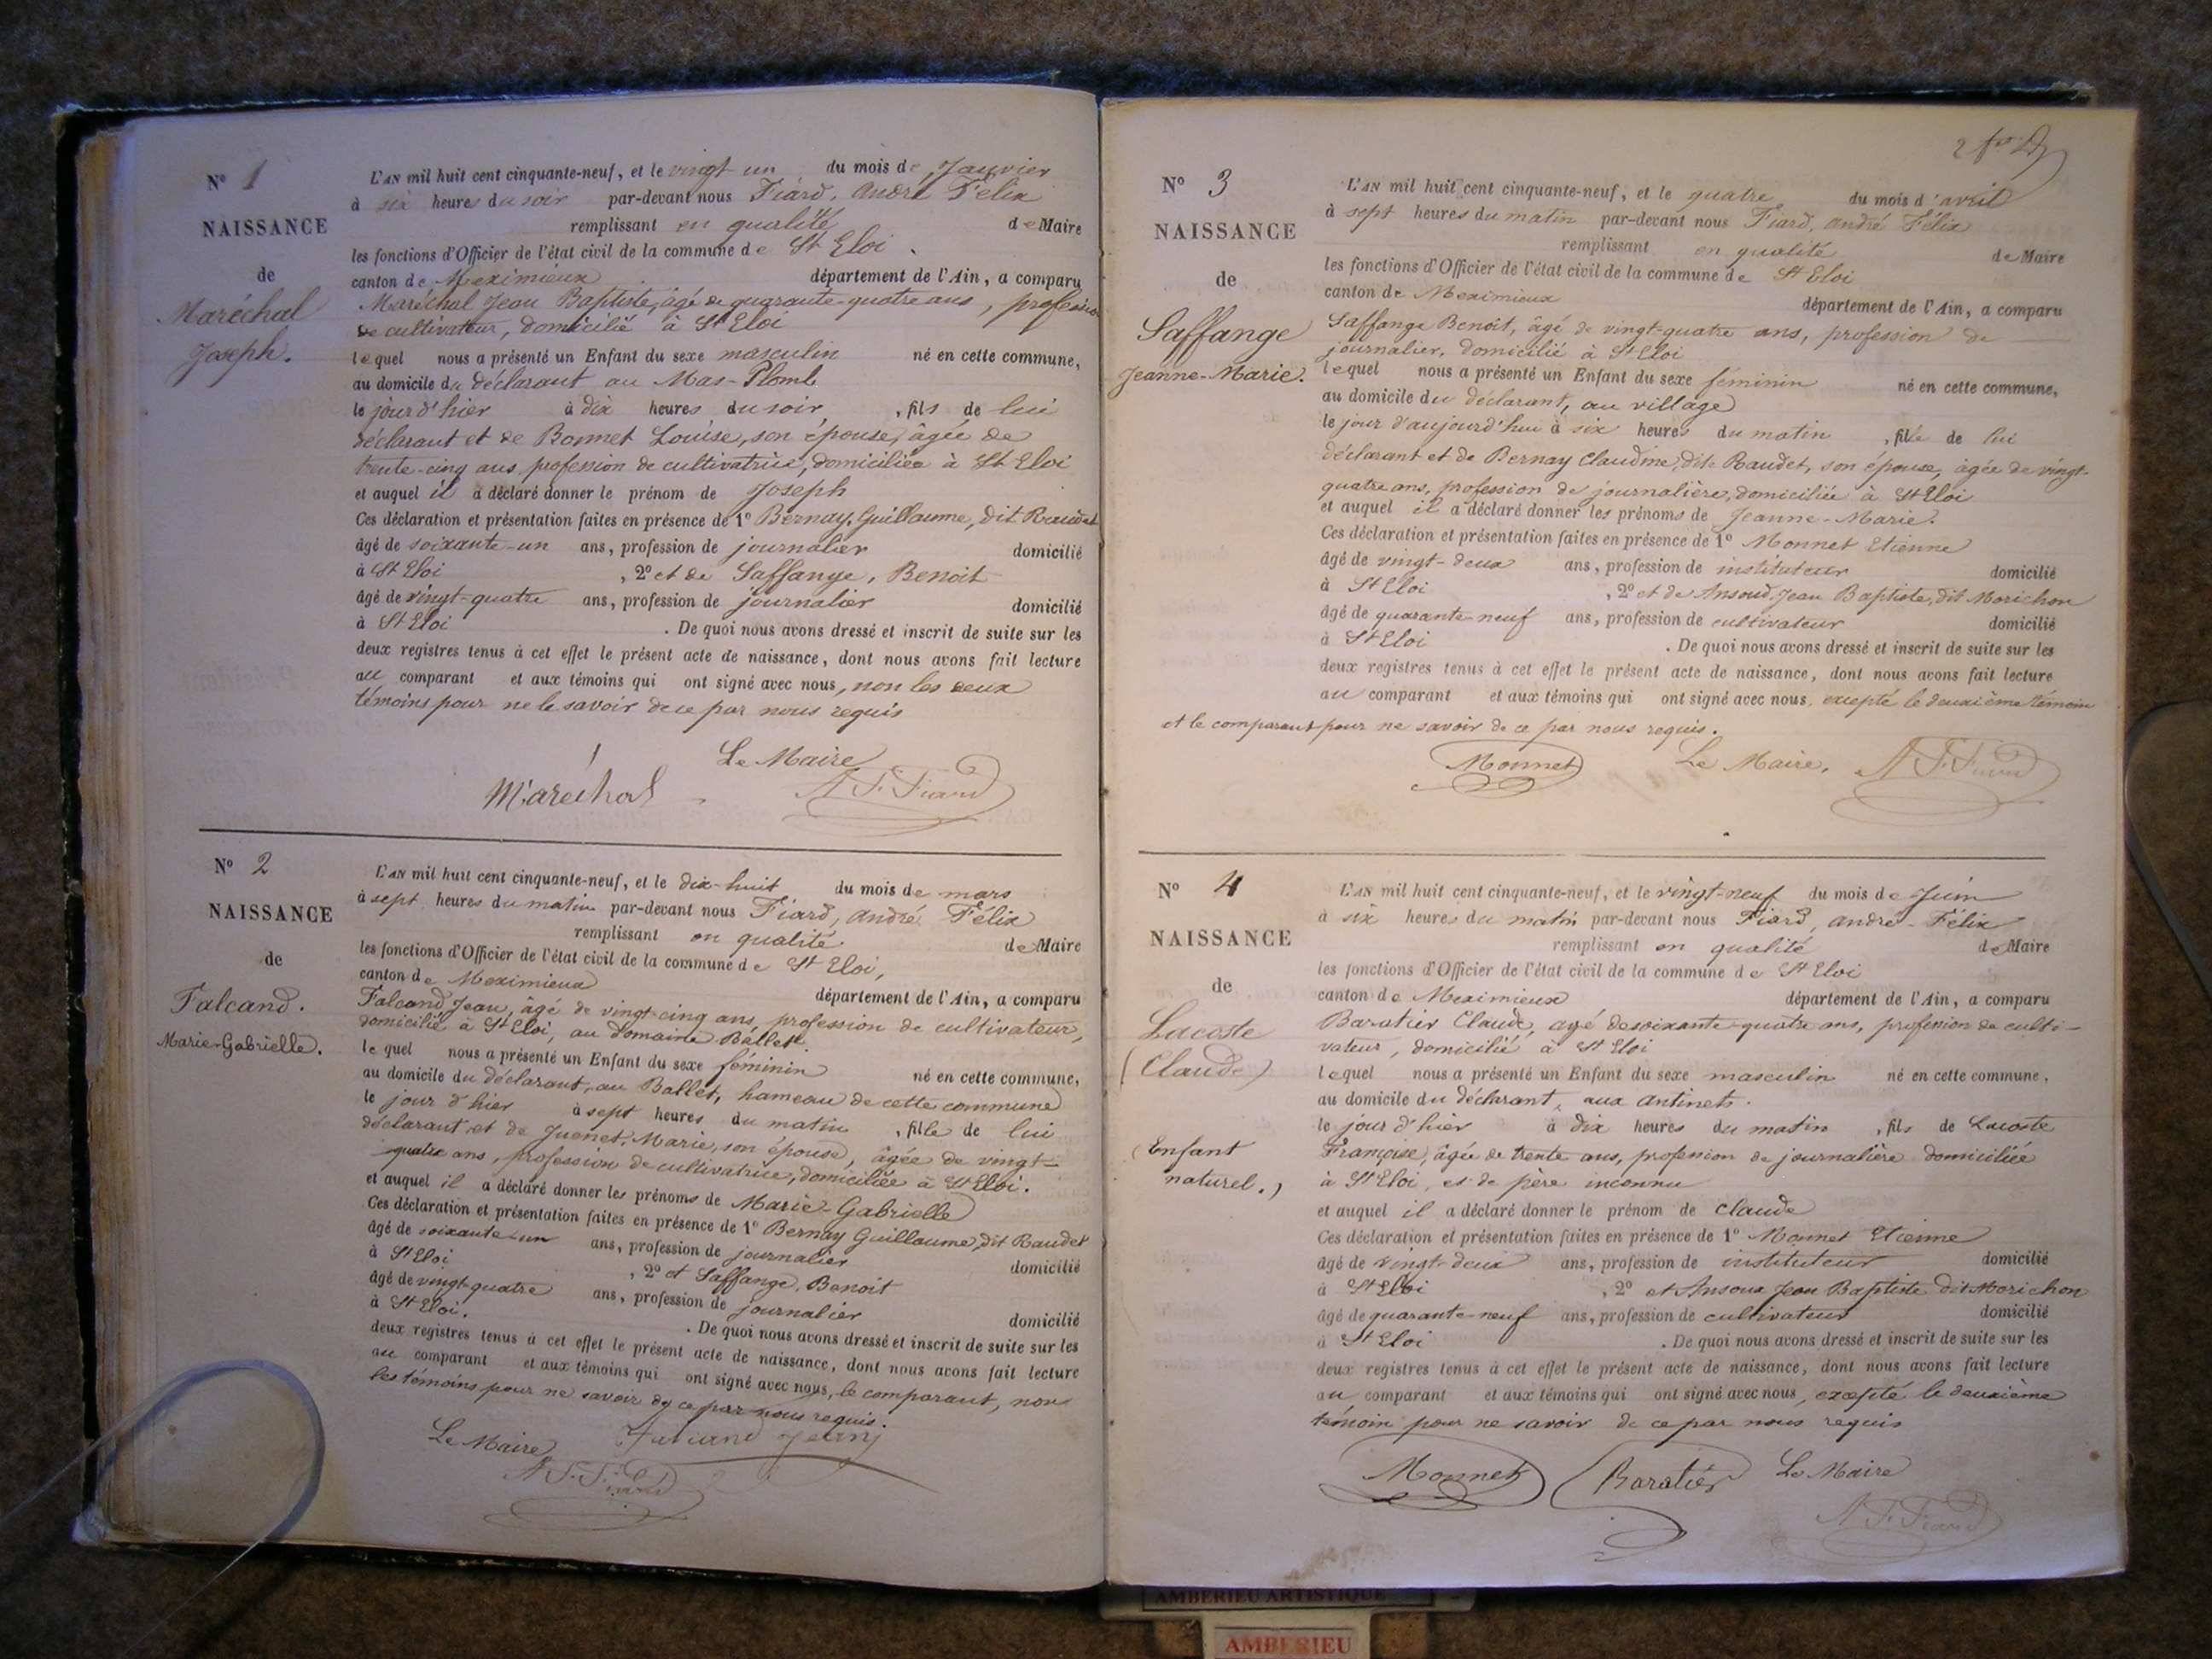 N° 1
NAISSANCE
de
Maréchal
Joseph.
L'AN mil huit cent cinquante-neuf, et le vingt un du mois de Janvier
à six heures du soir par-devant nous Fiard, André Félix
remplissant en qualité de Maire
les fonctions d'Officier de l'état civil de la commune de St Eloi
canton de Meximieux département de l'Ain, a comparu
Maréchal Jean Baptiste, âgé de quarante-quatre ans, profession
de cultivateur, domicilié à St Eloi
lequel nous a présenté un Enfant du sexe masculin né en cette commune,
au domicile du déclarant au Mas-Plomb
le jour d'hier à dix heures du soir, fils de lui
déclarant et de Bonnet Louise, son épouse, âgée de
trente-cinq ans, profession de cultivatrice, domiciliée à St Eloi
et auquel il a déclaré donner le prénom de Joseph
Ces déclaration et présentation faites en présence de 1° Bernay, Guillaume, dit Raudet
âgé de soixante-un ans, profession de journalier domicilié
à St Eloi, 2° et de Saffange, Benoit
âgé de vingt-quatre ans, profession de journalier domicilié
à St Eloi. De quoi nous avons dressé et inscrit de suite sur les
deux registres tenus à cet effet le présent acte de naissance, dont nous avons fait lecture
au comparant et aux témoins qui ont signé avec nous, non les deux
témoins pour ne le savoir de ce par nous requis
Le Maire
Maréchal A F. Fiard
N° 2
NAISSANCE
de
Falcand.
Marie-Gabrielle.
L'AN mil huit cent cinquante-neuf, et le dix-huit du mois de mars
à sept heures du matin par-devant nous Fiard, André Félix
remplissant en qualité de Maire
les fonctions d'Officier de l'état civil de la commune de St Eloi,
canton de Meximieux département de l'Ain, a comparu
Falcand Jean, âgé de vingt-cinq ans, profession de cultivateur,
domicilié à St Eloi, au domaine Ballet
lequel nous a présenté un Enfant du sexe féminin né en cette commune,
au domicile du déclarant, au Ballet, hameau de cette commune
le jour d'hier à sept heures du matin, fille de lui
déclarant et de Juenet, Marie, son épouse, âgée de vingt-
quatre ans, profession de cultivatrice, domiciliée à St Eloi.
et auquel il a déclaré donner les prénoms de Marie-Gabrielle
Ces déclaration et présentation faites en présence de 1° Bernay Guillaume, dit Raudet
âgé de soixante-un ans, profession de journalier domicilié
à St Eloi, 2° et Saffange, Benoit
âgé de vingt-quatre ans, profession de journalier domicilié
à St Eloi. De quoi nous avons dressé et inscrit de suite sur les
deux registres tenus à cet effet le présent acte de naissance, dont nous avons fait lecture
au comparant et aux témoins qui ont signé avec nous, le comparant, non
les témoins pour ne savoir de ce par nous requis.
Le Maire
A F. Fiard
N° 3
NAISSANCE
de
Saffange
Jeanne-Marie.
L'AN mil huit cent cinquante-neuf, et le quatre du mois d'avril
à sept heures du matin par-devant nous Fiard, André Félix
remplissant en qualité de Maire
les fonctions d'Officier de l'état civil de la commune de St Eloi
canton de Meximieux département de l'Ain, a comparu
Saffange Benoit, âgé de vingt-quatre ans, profession de
journalier, domicilié à St Eloi
lequel nous a présenté un Enfant du sexe féminin né en cette commune,
au domicile du déclarant, au village
le jour d'aujourd'hui à six heures du matin, fille de lui
déclarant et de Bernay Claudine, dite Raudet, son épouse, âgée de vingt-
quatre ans, profession de journalière, domiciliée à St Eloi
et auquel il a déclaré donner les prénoms de Jeanne-Marie.
Ces déclaration et présentation faites en présence de 1° Monnet Etienne
âgé de vingt-deux ans, profession de instituteur domicilié
à St Eloi, 2° et de Ansoud, Jean Baptiste, dit Morichon
âgé de quarante-neuf ans, profession de cultivateur domicilié
à St Eloi. De quoi nous avons dressé et inscrit de suite sur les
deux registres tenus à cet effet le présent acte de naissance, dont nous avons fait lecture
au comparant et aux témoins qui ont signé avec nous, excepté le deuxième témoin
et le comparant pour ne savoir de ce par nous requis.
Monnet Le Maire, A F. Fiard
N° 4
NAISSANCE
de
Lacoste
(Claude)
(Enfant
naturel.)
L'AN mil huit cent cinquante-neuf, et le vingt-neuf du mois de Juin
à six heures du matin par-devant nous Fiard, André-Félix
remplissant en qualité de Maire
les fonctions d'Officier de l'état civil de la commune de St Eloi
canton de Meximieux département de l'Ain, a comparu
Baratier Claude, agé de soixante-quatre ans, profession de culti-
vateur, domicilié à St Eloi
lequel nous a présenté un Enfant du sexe masculin né en cette commune,
au domicile du déclarant, aux Antinets.
le jour d'hier à dix heures du matin, fils de Lacoste
Françoise, âgée de trente ans, profession de journalière domiciliée
à St Eloi, et de père inconnu
et auquel il a déclaré donner le prénom de Claude
Ces déclaration et présentation faites en présence de 1° Monnet Etienne
âgé de vingt-deux ans, profession de instituteur domicilié
à St Eloi, 2° et Ansoud Jean Baptiste dit Morichon
âgé de quarante-neuf ans, profession de cultivateur domicilié
à St Eloi. De quoi nous avons dressé et inscrit de suite sur les
deux registres tenus à cet effet le présent acte de naissance, dont nous avons fait lecture
au comparant et aux témoins qui ont signé avec nous, excepté le deuxième
témoin pour ne savoir de ce par nous requis
Monnet Baratier Le Maire
A F. Fiard
AMBERIEU ARTISTIQUE
AMBERIEU